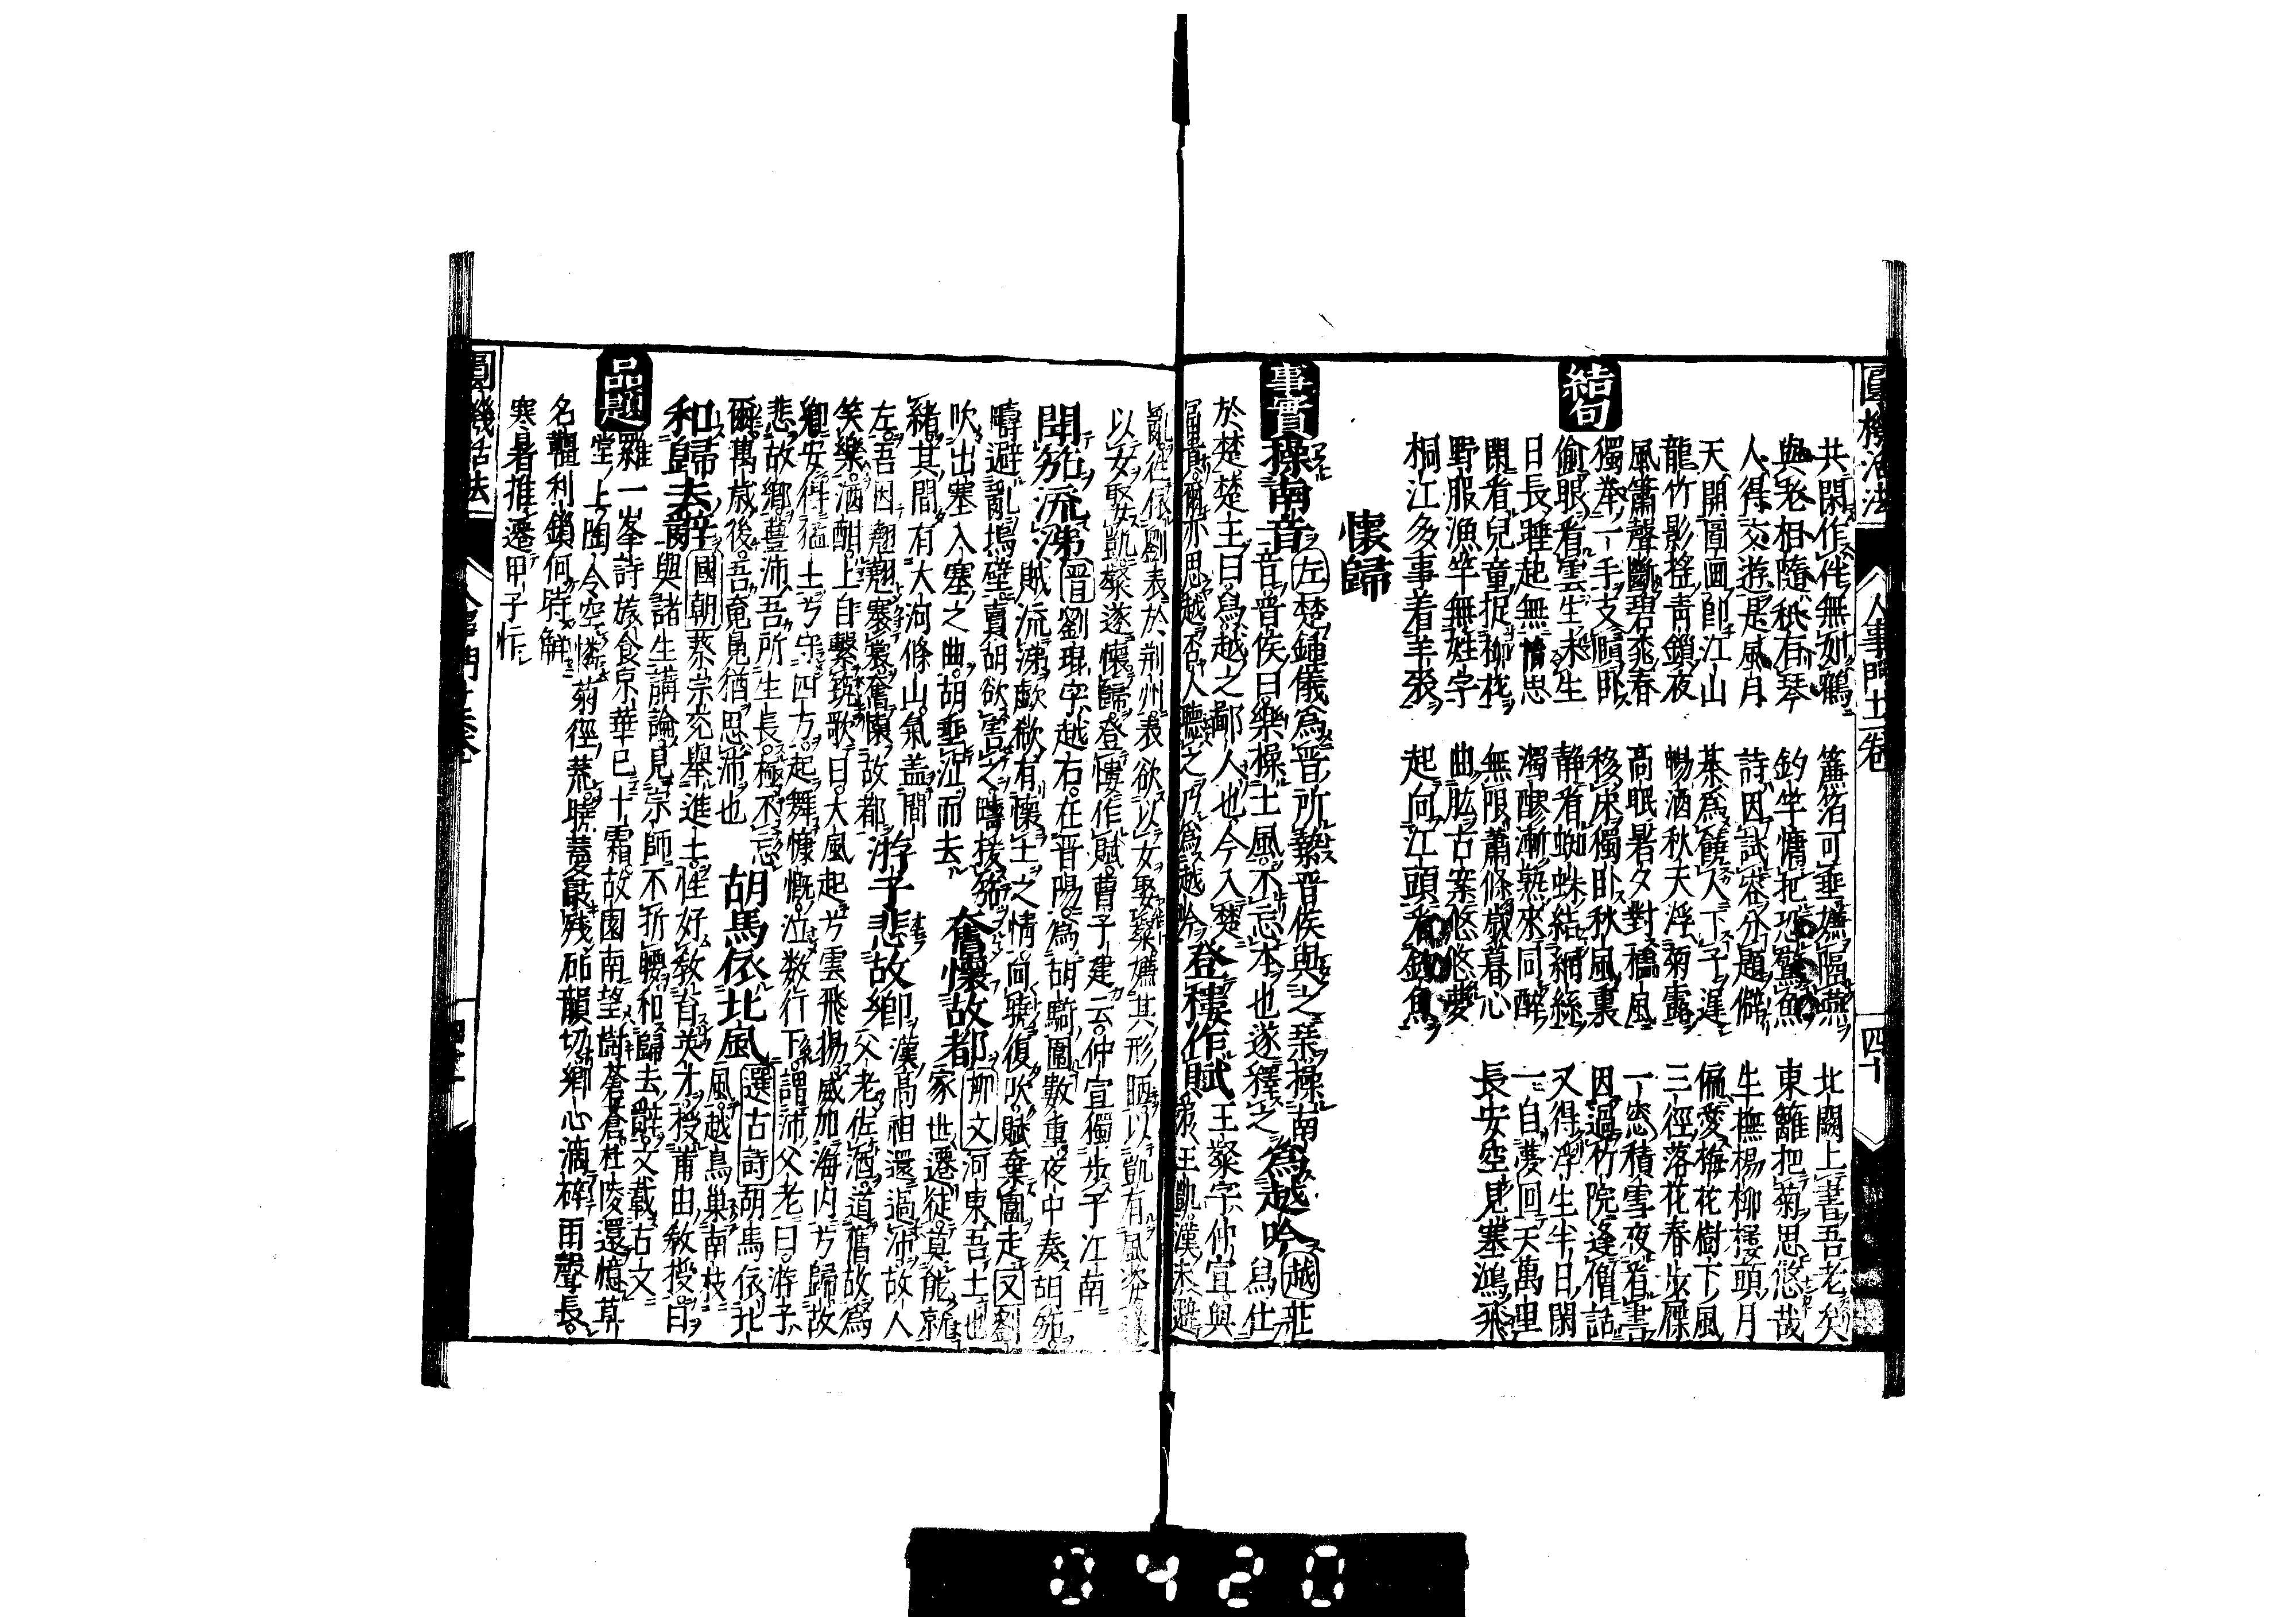 圓機活法
人事門十二卷
四十
共閑作伴無如鶴
與老相隨秖有琴
人得交遊是風月
天開圖畫即江山
龍竹影搖青鎖夜
鳳簫聲斷碧桃春
獨拳一手支頤臥
偷眼看雲生未生
日長睡起無情思
閑看兒童捉柳花
野服漁竿無姓字
桐江多事着羊裘
簾箔可垂嫌隔燕
釣竿慵把恐驚魚
詩因試客分題僻
棊爲饒人下子遲
暢酒秋天浮菊露
高眠暑夕對橋風
移床獨臥秋風裏
靜看蜘蛛結網絲
濁醪漸熟來同醉
無限蕭條歲暮心
曲肱古案悠悠夢
起向江頭看釣魚
北闕上書吾老矣
東籬把菊思悠哉
生撫楊柳樓頭月
偏愛梅花樹下風
三徑落花春步屧
一窓積雪夜看書
因過竹院逢僧話
又得浮生半日閑
一自夢回天萬里
長安空見塞鴻飛
結句
懷歸
事實
操南音 左 楚鍾儀爲晉所縶晉侯與之琴操南
音晉侯曰樂操土風不忘本也遂釋之
爲越吟 越莊
舃仕
於楚楚王曰舃越之鄙人也今入楚
富貴爾亦思越否人聽之乃爲越吟
登樓作賦 王粲字仲宣與
族王凱漢末避
亂往依劉表於荆州表欲以女娶粲嫌其形陋以凱有風姿遂
以女娶凱粲遂懷歸登樓作賦曹子建云仲宣獨步于江南
聞笳流涕 晉 劉琨字越石在晉陽爲胡騎圍數重夜中奏胡笳
賊流涕歔欷有懷土之情向曉復吹賊棄圍走又劉
疇避亂塢壁賈胡欲害之疇援笳
吹出塞入塞之曲胡垂泣而去
奮懷故都 柳文 河東吾土也
家世遷徙莫能就
緒其間有大河條山氣盖間
左吾因翹翹褰裳奮懷故都
游子悲故鄉 漢高祖還過沛故人
父老佐酒道舊故爲
笑樂酒酣上自擊筑歌曰大風起兮雲飛揚威加海内兮歸故
鄉安得猛士兮守四方起舞慷慨泣数行下謂沛父老曰游子
悲故鄉豊沛吾所生長極不忘
爾萬歲後吾竟鳧猶思沛也
胡馬依北風 選古詩 胡馬依北
風越鳥巢南枝
和歸去辭 國朝 蔡宗兖舉進士性好敎育英才授莆田敎授曰
與諸生講論見宗師不折腰和歸去辭文載古文
品題
羅一峯詩旅食京華已十霜故園南望樹蒼蒼杜陵還憶草
堂上陶令空憐菊徑荒聽蔓敲殘砧韻切鄉心滴碎雨聲長
名韁利鎖何時解
寒暑推遷甲子忙
圓機活法